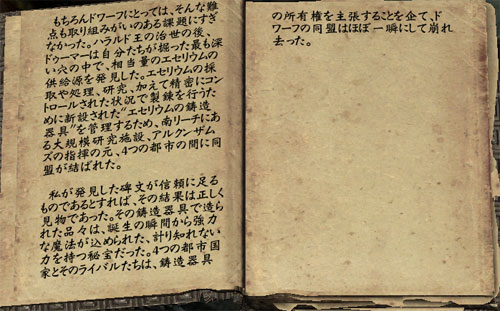 もちろんドワーフにとっては、そんな難
点も取り組みがいのある課題にすぎ
なかった。ハラルド王の治世の後、
ドゥーマーは自分たちが掘った最も深
い穴の中で、相当量のエセリウムの
供給源を発見した。エセリウムの採
取や処理、研究、加えて精密にコン
トロールされた状況で製錬を行うた
めに新設された“エセリウムの鋳造
器具”を管理するため、南リーチにあ
る大規模研究施設、アルクンザム
ズの指揮の元、4つの都市の間に同
盟が結ばれた。
私が発見した碑文が信頼に足る
ものであるとすれば、その結果は正しく
見物であった。その鋳造器具で造ら
れた品々は、誕生の瞬間から強力
な魔法が込められた、計り知れない
力を持つ秘宝だった。4つの都市国
家とそのライバルたちは、鋳造器具
の所有権を主張することを企て、ド
ワーフの同盟はほぼ一瞬にして崩れ
去った。